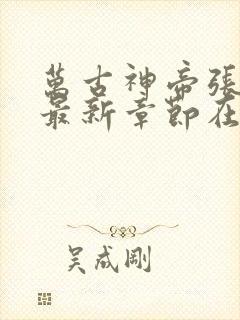 萬古神帝張
最新章節在
吴成剛